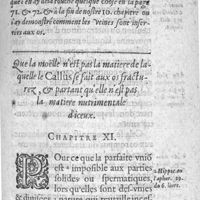 que i'en ay touché quelque chose en la page
71. & 72. & à la fin de nostre 10. chapitre ou
i'ay demonstré comment les veines sont inser-
rées aux os.
Que la moëlle n'est pas la matiere de la-
quelle le Callus se fait aux os fractu-
rez, & partant qu'elle n'est pas
la matiere nutrimentale
d'iceux.
CHAPITRE XI.
POur ce que la parfaite vnió
est a impossible aux parties
solides ou spermatiques,
lors qu'elles sont des-vnies
a Hippoc. en
l'aphor. 19.
du 6. liure.